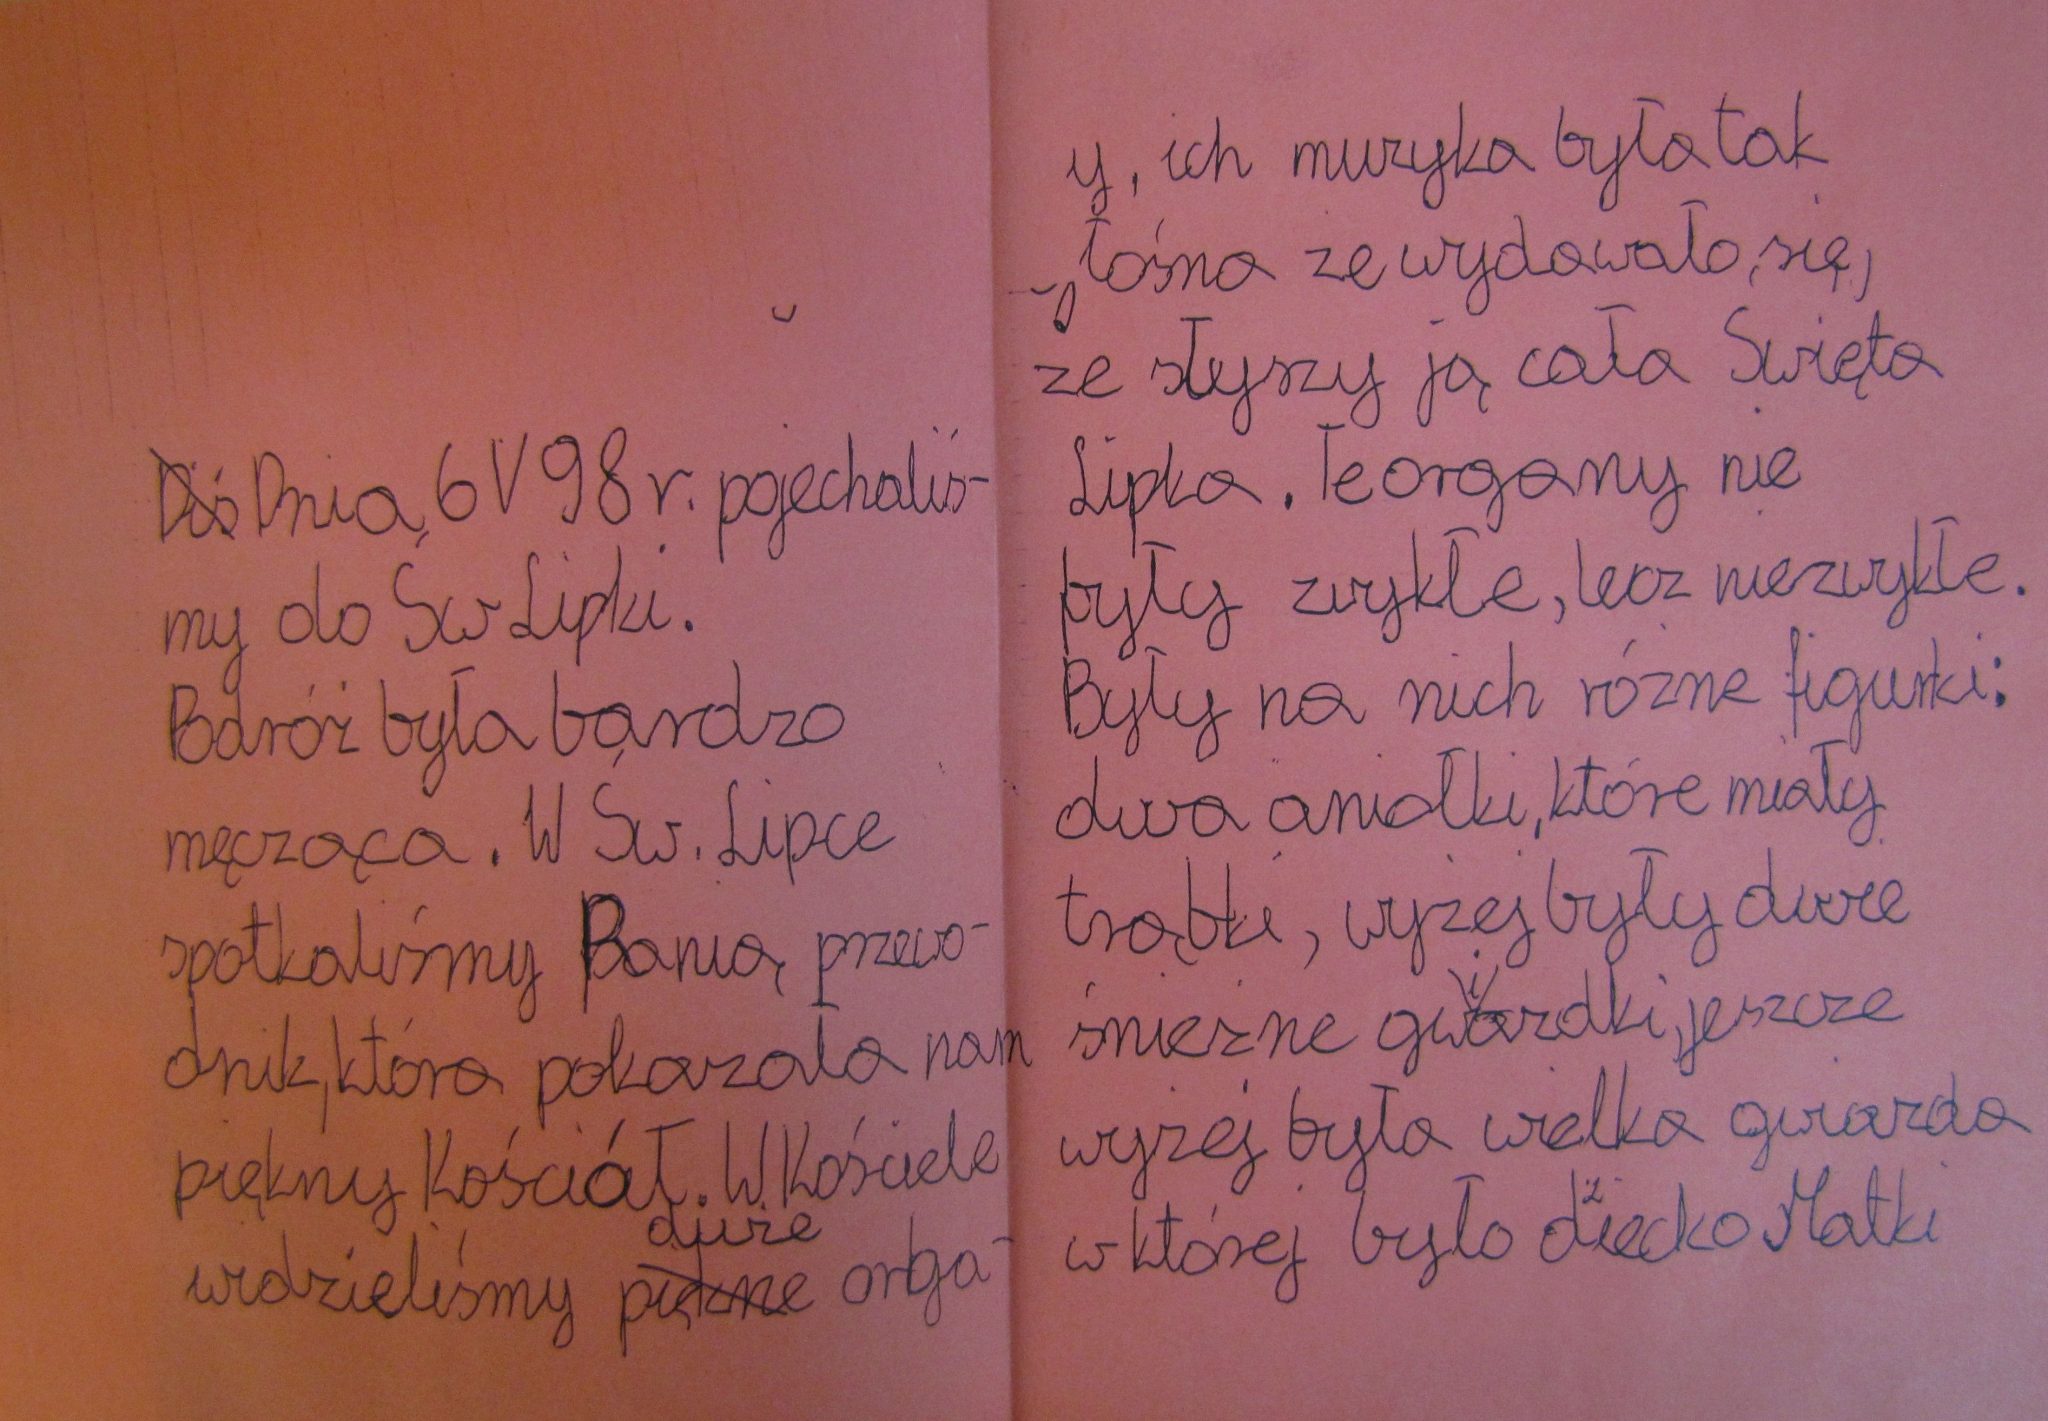 Diś Dnia, 6 V 98 r. pojechaliś-
my do Św Lipki.
Podróż była bardzo
męcząca. W Św. Lipce
spotkaliśmy Panią przewo-
dnik, która pokazała nam
piękny Kościół. W Kościele
duże
widzieliśmy piękne orga-
y, ich muzyka była tak
łośna ze wydawało, się,
ze słyszy ją cała Swięta
Lipka. Te organy nie
były zwykłe, lecz niezwykłe.
Były na nich rózne figurki:
dwa aniołki, które miały
trąbki, wyżej były dwie
śniezne gwiazdki, jeszcze
wyzej była wielka gwiazda
w której było dziecko Matki